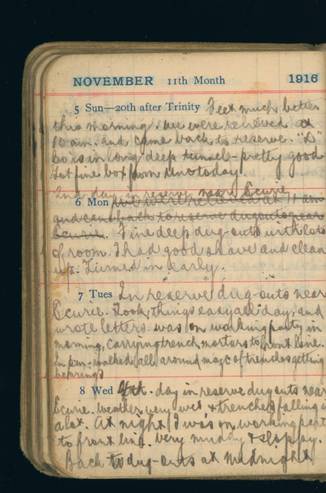 NOVEMBER 11th Month 1916
5 Sun—20th after Trinity Feel much better
this morning. we were relieved at
10 a.m. and came back to reserve. "D"
Co is in long deep tunnel - pretty good
Got fine box from Uno today.
2nd day in reserve near Ecurie
6 Mon we were relieved at 11 am
and came back to reserve dug outs near
Ecurie. Fine deep dug-outs with lots
of room. I had good shave and clean
up. Turned in early.
7 Tues In reserve dug-outs near
Ecurie. Took things easy all day, and
wrote letters. was on working party in
morning, carrying trench mortars to front line.
In p.m. walked all around maze of trenches getting
bearings
8 Wed 4th. day in reserve dug outs near
Ecurie. Weather very wet & trenches falling in
a lot. At night I was on working party
to front line. Very muddy & sloppy.
Back to dug-outs at midnight